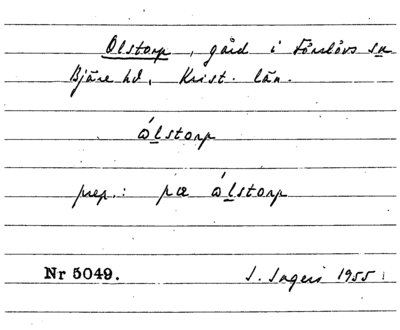 Olstorp, gård i Förslövs sn
Bjäre hd, Krist. län.
ólstorp
prep.: pæ ólstorp
Nr 5049. S. Ingers 1955.